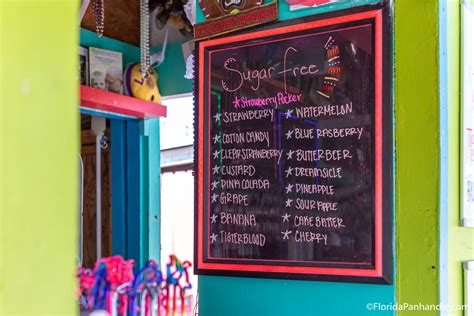 Sugar free
★Strawberry Pucker
★ STRAWBERRY
★ COTTON CANDY
★ CLEAR STRAWBERRY
★ CUSTARD
★ PINA COLADA
★ GRAPE
★ BANANA
★ TIGERBLOOD
★ WATERMELON
★ BLUE RASPBERRY
★ BUTTER BEER
★ DREAMSICLE
★ PINEAPPLE
★ SOUR APPLE
★ CAKE BATTER
★ CHERRY
©FloridaPanhandle.com